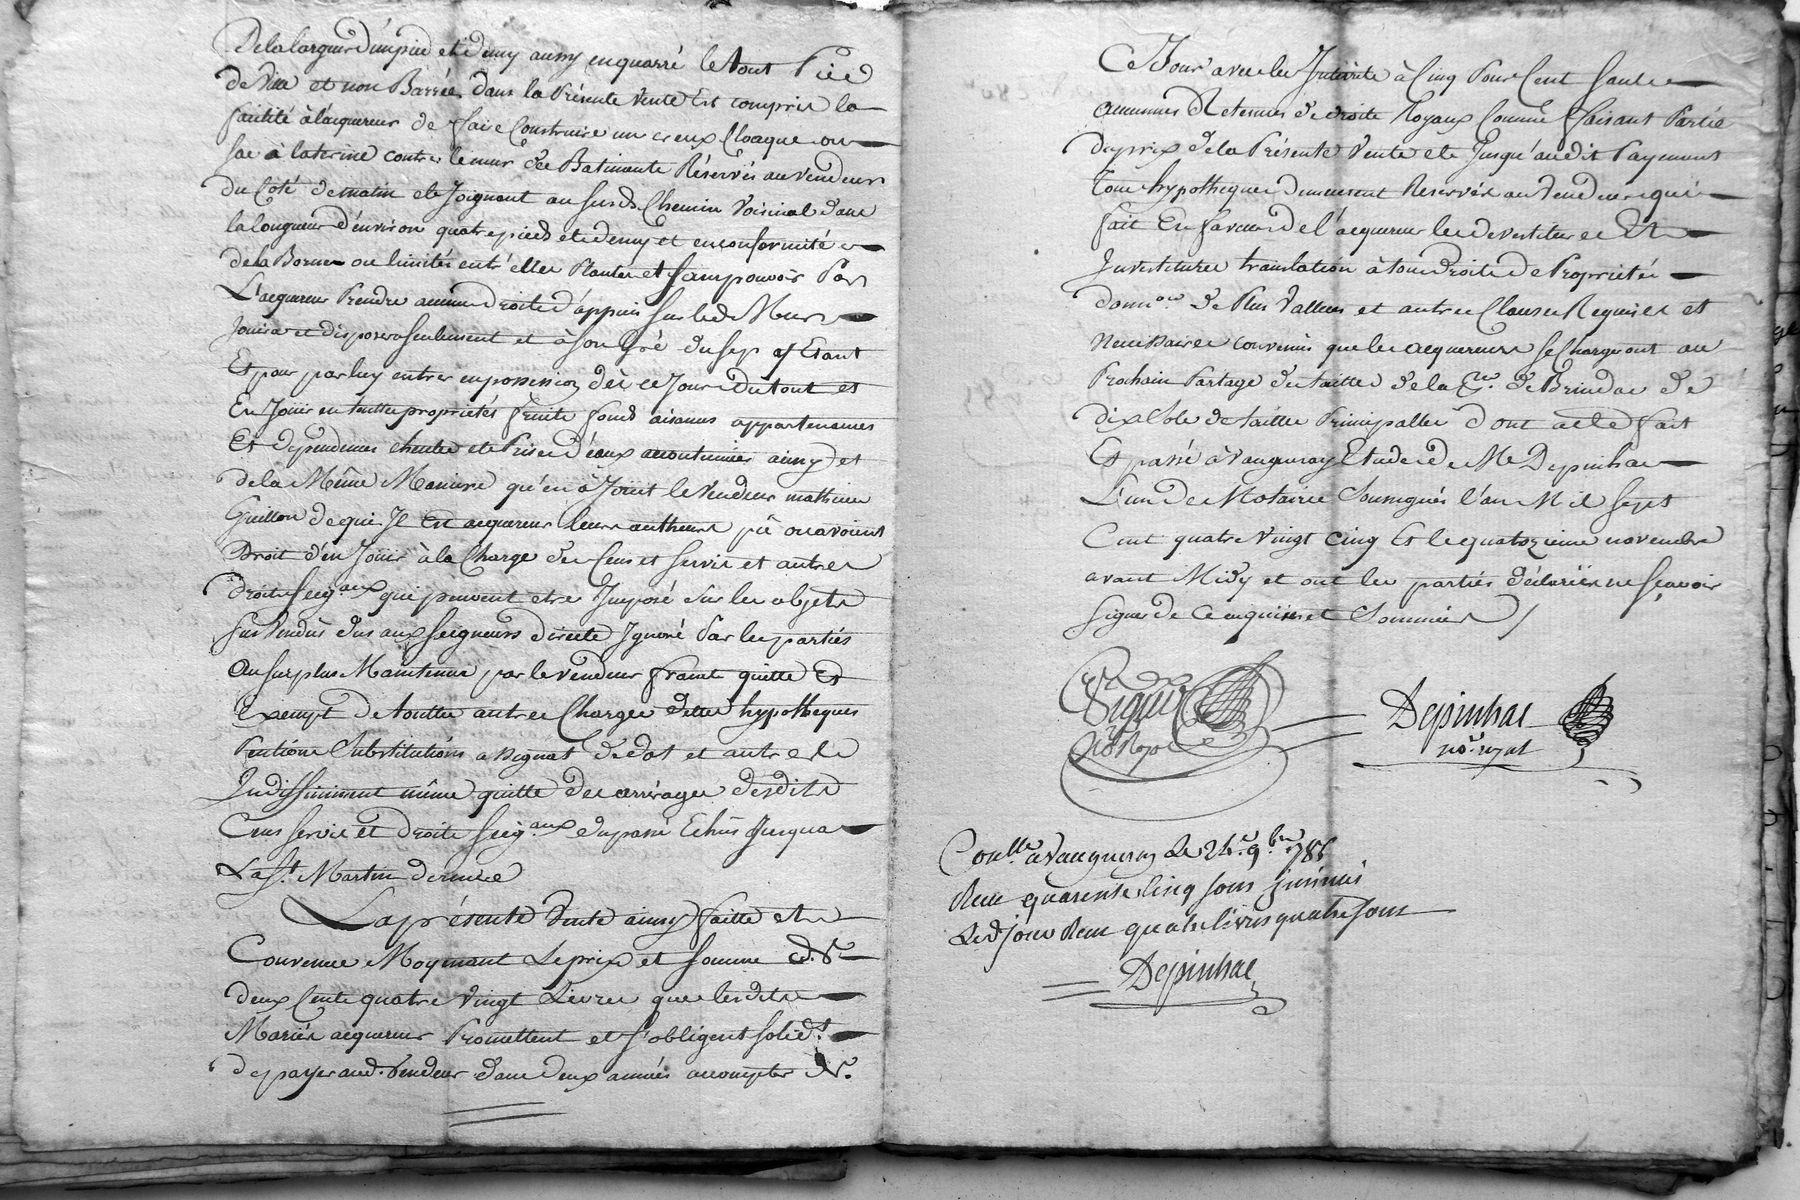 De la largeur d'un pied et demy aussy en quarré le tout Pied
de Ville et non Barrée, dans la Présente vente Est compris la
faculté à l'acquereur de faire Construire un creux Cloaque ou
sac à laterine contre le mur des Batiments Réservés au vendeur
du Coté de matin et Joignant au susd. Chemin Voisinal dans
la longueur d'environ quatre pieds et demy et en conformité
de la Borne ou limites entr'elles Plantée et sans pouvoir Par
L'acquereur Prendre aucun droits d'appuis sur led. Mur
Jouira et disposera seulement et à son Gré du sep y Etant
Et pour par luy entrer en possession dès ce Jour Du tout et
En Joüir en toutte proprietés fruits fonds aisances appartenances
Et dependances chutte et Prises d'eaux accoutumées ainsy et
de la Même Maniere qu'en à Jouit le vendeur mathieu
Guillon de qui Il Est acquereur leurs autheurs pû ou avoient
Droit d'en Joüir à la Charge des Cens et servis et autres
droits seig.aux qui peuvent etre Imposé sur les objets
sus vendus dus aux seigneurs directs Ignoré Par les parties
au surplus Maintenus par le vendeur franc quitte Et
Exempt de toutte autres Charges dettes hypotheques
Pentions Substitutions assignat de dot et autres
Indéffiniment même quitte des arrérages desdits
Cens servis et droits seig.aux du passé Echûs Jusqu'a
La St. Martin derniere
La présente Vente ainsy faitte et
Convenue Moyennant Le prix et somme de
deux Cents quatre vingt Livres que lesdits
Mariés acquereurs Promettent et s'obligent solid.t
de payer aud. Vendeur dans deux années accompter de
Ce Jour avec les Interêts à Cinq Pour Cent sans
aucunnes Retenues de droits Royaux Comme faisant Partie
du prix de la Présente Vente et Jusqu'audit Payement
tous hypotheques demeurent Reservés au vendeur qui
fait En faveur de l'acquereur les devestitures Et
Investitures translation à tous droits de Proprietés
don.on de Plus Valleurs et autres Clauses Requises et
Necessaires convenus que les acquereurs se Chargeront au
Prochain Partage des tailles de la p.sse de Brindas de
dix sols de taille Principalle dont acte fait
Et passé à Vaugneray Etude de Me Depinhac
L'un des Notaires Soussignés l'an Mil Sept
Cent quatre Vingt Cinq Et le quatorzieme novembre
avant Midy et ont les parties déclarées ne sçavoir
signer de Ce enquises et Sommées /
Depinhac
no.re royal
Con.lle a Vaugneray Le 24.e 9.bre 1785
Recu quarente cinq sous Jinsinué
Led. jour Recu quatre livres quatre sous
Depinhac